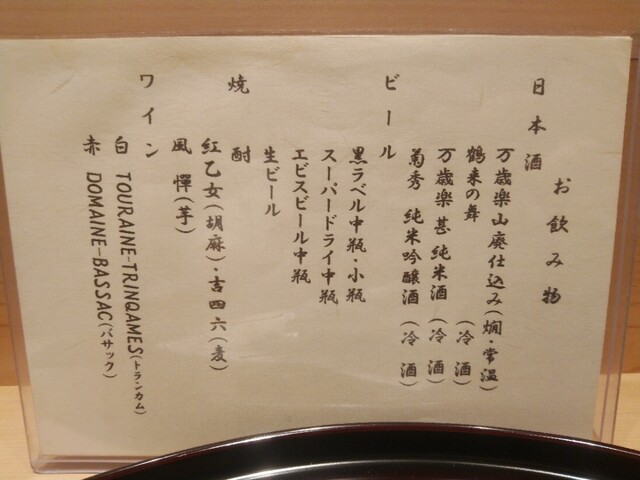 お飲み物
日本酒
万歳楽山廃仕込み(燗・常温)
鶴来の舞 (冷酒)
万歳楽 甚 純米酒 (冷酒)
菊秀 純米吟醸酒 (冷酒)
ビール
黒ラベル中瓶・小瓶
スーパードライ中瓶
エビスビール中瓶
生ビール
焼酎
紅乙女(胡麻)・吉四六(麦)
風憚(芋)
ワイン
白 TOURAINE-TRINQAMES(トランカム)
赤 DOMAINE-BASSAC(バサック)